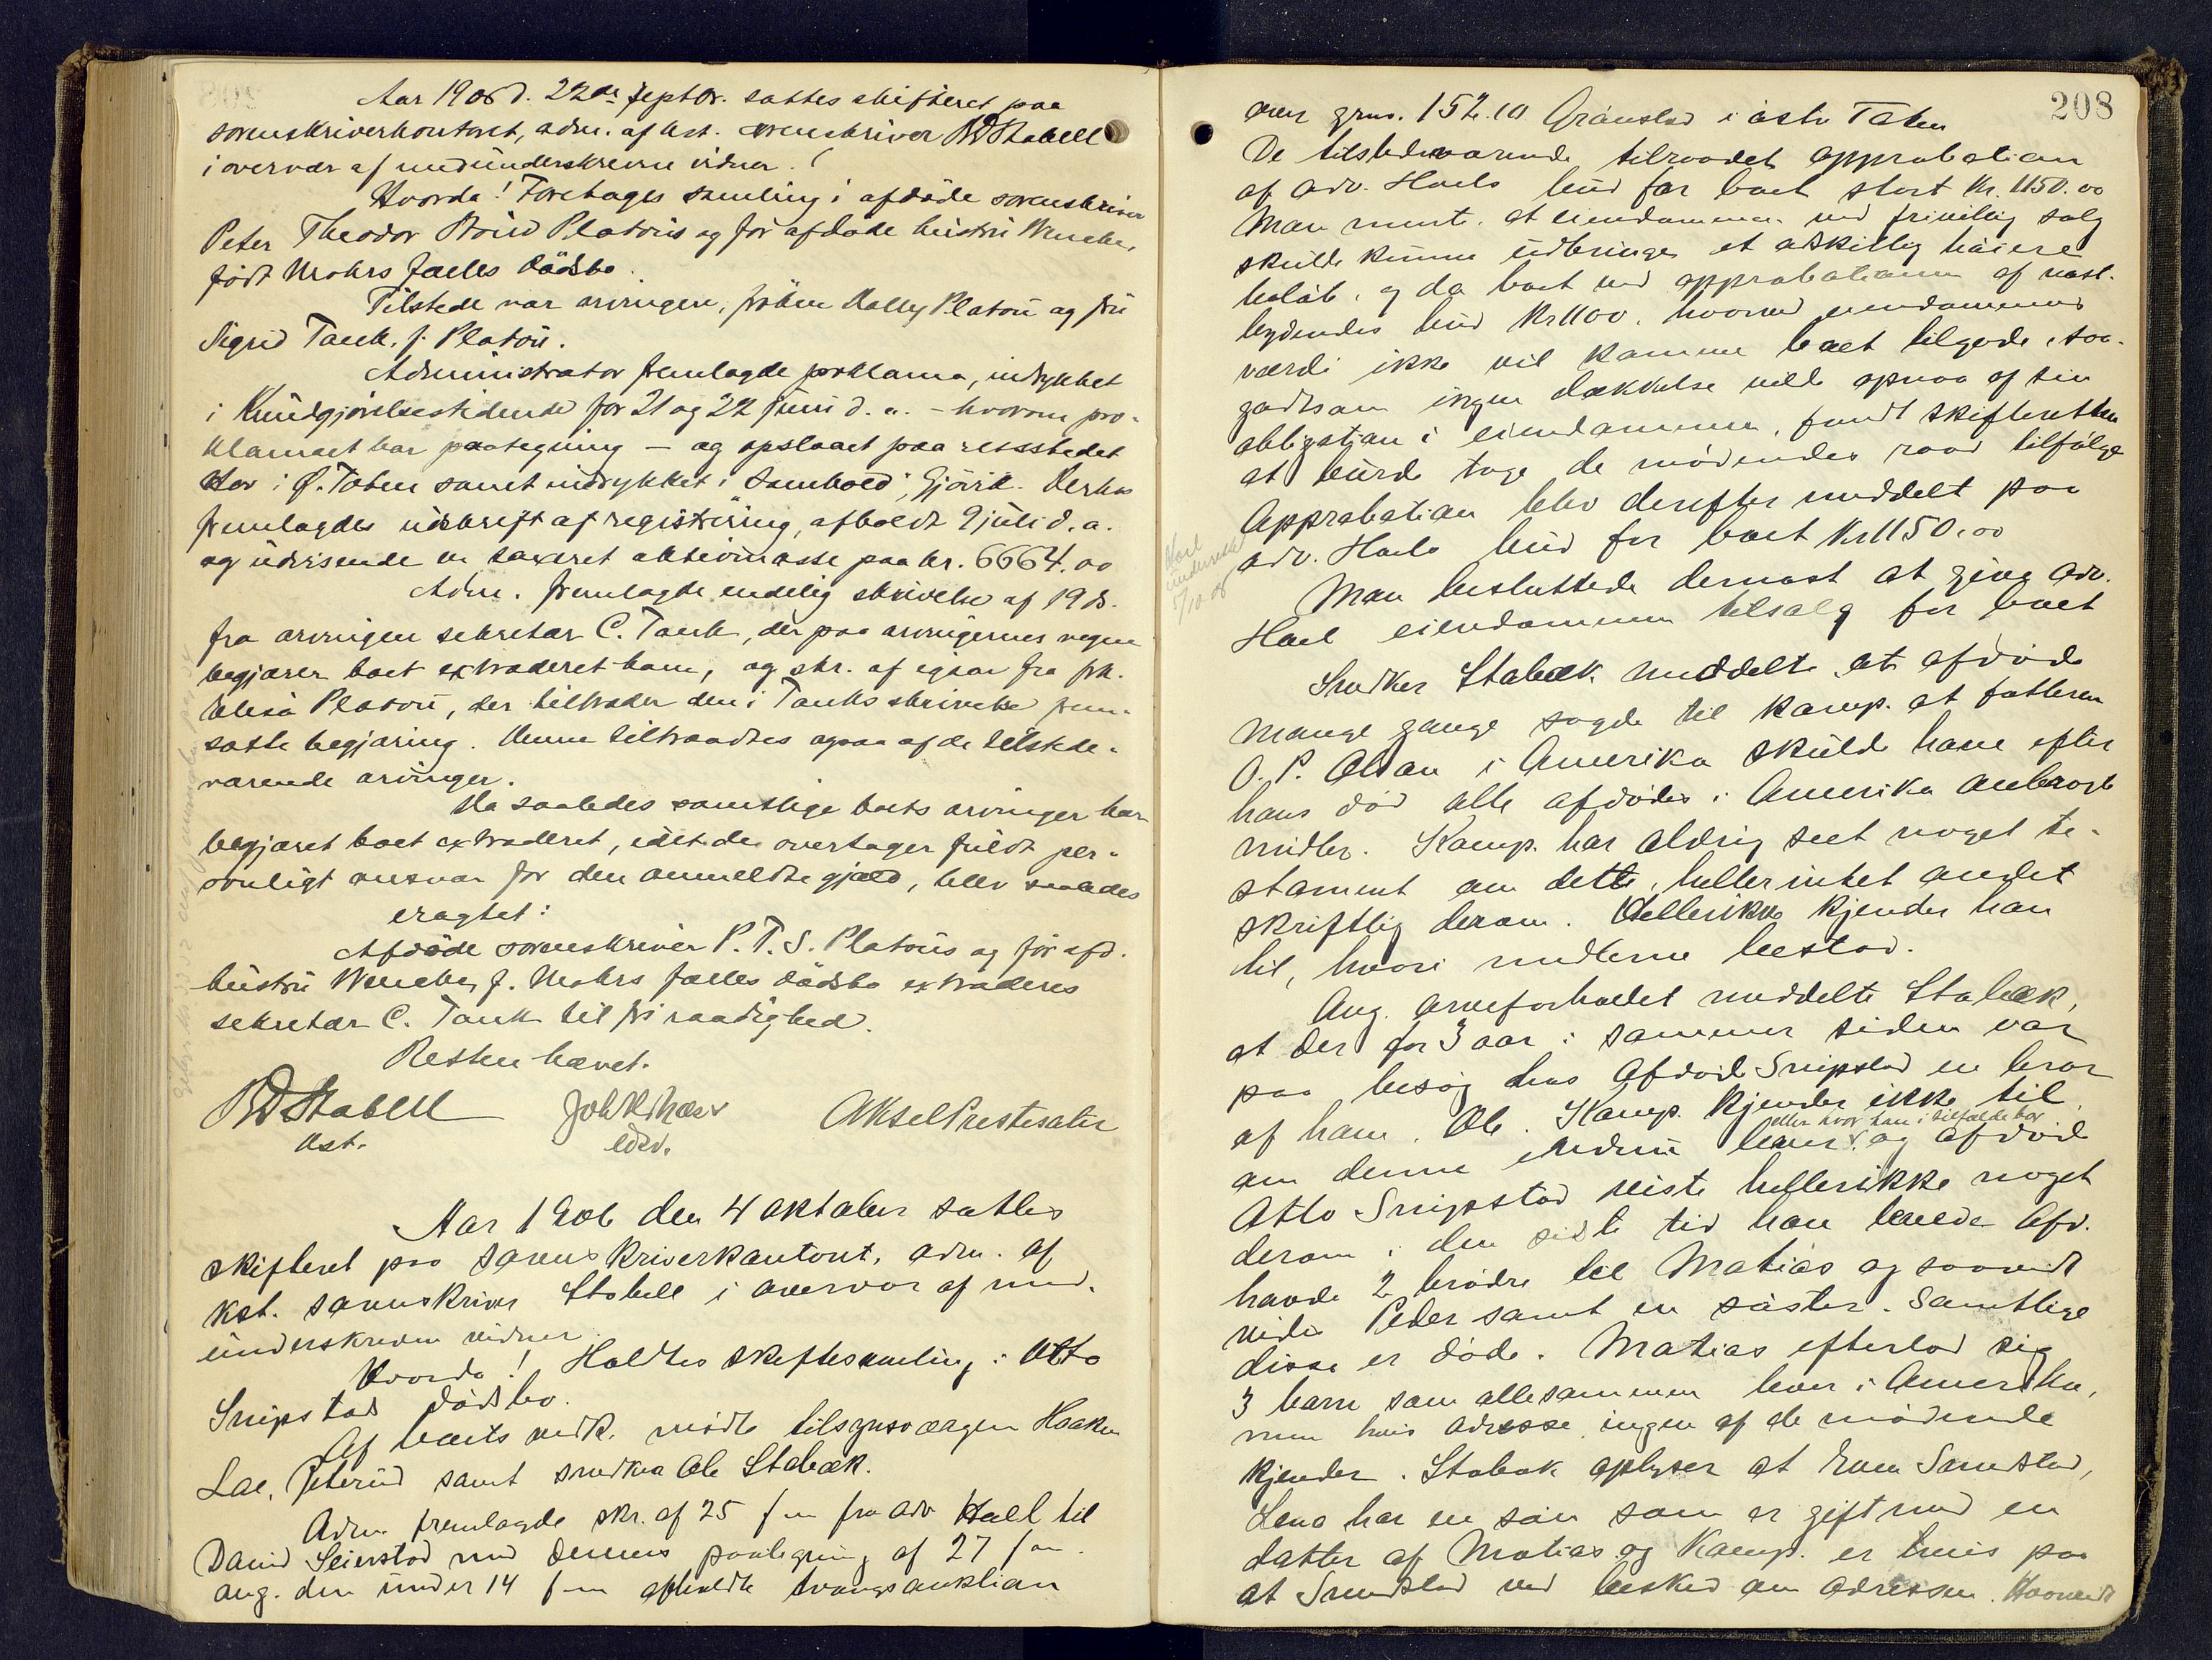 Aar 1906 d. 22de septbr. sattes skifteret paa
sorenskriverkontoret, adm. af kst. sorenskriver BD Stabell
i overvær af medunderskrevne vidner.
Hvorda! Foretages samling i afdöde sorenskriver
Peter Theodor Platous og för afdöde hustru Wenche,
född Mohrs fælles dödsbo.
Tilstede var arvingen, fröken Dolly Platou og fru
Sigrid Tank, f. Platou.
Administrator fremlagde proklama, indrykket
i Kundgjörelsestidende for 21 og 22 juni d. a. – hvorom pro-
klamaet har paategning – og opslaaet paa retsstedet
her i Ö. Toten samt indrykket i Samhold, Gjövik. Derhos
fremlagdes udskrift af registrering, afholdt 9 juli d. a.
og udvisende en taxeret aktivmasse paa kr. 6664.00
Adm. fremlagde endelig skrivelse af 19 ds.
fra arvingen sekretær C. Tank, der paa arvingernes vegne
begjærer boet extraderet ham, og skr. af igaar fra frk.
Elisa Platou, der tiltræder den i Tanks skrivelse frem-
satte begjæring. Denne tiltraadtes ogsaa af de tilstede-
værende arvinger.
Da saaledes samtlige boets arvinger har
begjæret boet extraderet, idet de overtager fuldt per-
sonligt ansvar for den anmeldte gjæld, blev saaledes
eragtet:
Afdöde sorenskriver P. T. S. Platous og för afd.
hustru Wenche, f. Mohrs fælles dödsbo extraderes
sekretær C. Tank til fri raadighed.
Retten hævet.
BD Stabell Aksel Prestesæter
kst. edsv.
Aar 1906 den 4 oktober sattes
skifteret paa sorenskriverkontoret, adm. af
kst. sorenskriver Stabell i overvær af med-
underskrevne vidner
Hvorda! Holdtes skiftesamling i Otto
Snipstad dödsbo.
Af boets vedk. mödte tilsynsværgen Haaken
Lae, Peterud samt snedker Ole Stabæk.
Adm. fremlagde skr. af 25 f m fra adv Hoel til
David Seierstad med dennes paategning af 27 f m
ang. den under 14 f m afholdte tvangsauktion
208
over grno. 152.10 Grönstad i östr Toten
De tilstedeværende tilraadet approbation
af adv. Hoels bud for boet stort Kr. 1150.00
Man mente, at eiendommen ved frivillig salg
skulde kunne udbringe et adskillig höiere
belöb, og da boet ved approbationen af næst-
bydendes bud Kr 1100, hvorved eiendommens
værdi ikke vil komme boet tilgode, saa-
godtsom ingen dækkelse vilde opnaa af sin
obligation i eiendommen, fandt skifteretten
at burde tage de mödendes raad tilfölge
Approbation blev derefter meddelt paa
adv. Hoels bud for boet Kr 1150.00
Hoel
underrettet
5/10 06
Man besluttede dernæst at give adv.
Hoel eiendommen tilsalg for boet
Snedker Stabæk meddelte, at afdöde
mange gange sagde til komp. at fatteren
O. P. Olson i Amerika skulde have efter
hans död alle afdödes i Amerika anbragte
midler. Komp. har aldrig seet noget te-
stament om dette, heller intet andet
skriftlig derom. Hellerikke kjender han
til, hvori midlerne bestod.
Ang. arveforholdet meddelte Stabæk,
at der for 3 aar i sommer siden var
paa besög hos afdöde Snipstad en bror
af ham, Ole. Komp. kjender ikke til
om denne endnu lever eller hvor han i tilfælde bor og afdöde
Otto Snipstad viste hellerikke noget
derom i den sidste tid han levede Afd.
havde 2 brödre til Matias og saavidt
vides Peder samt en söster. Samtlige
disse er döde. Matias efterlod sig
3 barn som allesammen lever i Amerika,
men hvis adresse ingen af de mödende
kjender. Stabæk oplyser at Even Sandstad,
Lena har en sön som er gift med en
datter af Matias og Komp. er vis paa
at Sandstad ved besked om adressen. Hvorvidt